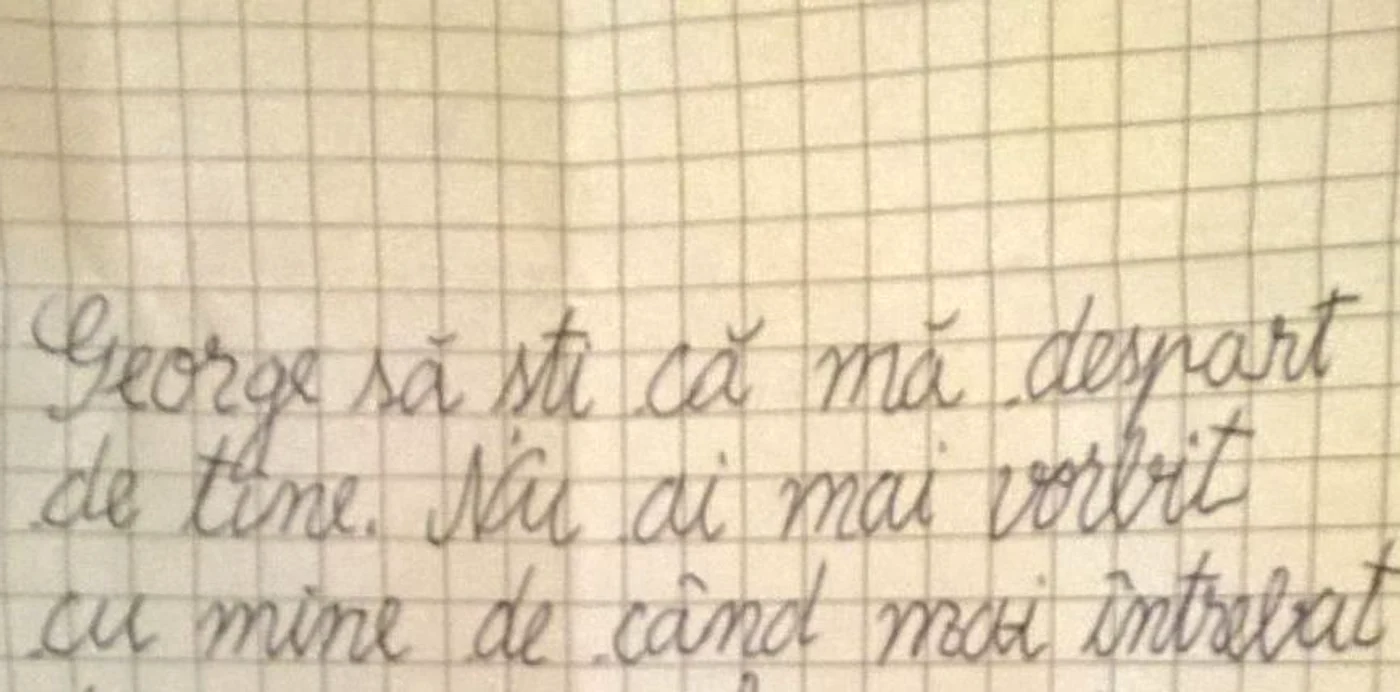 George să sti că mă despart
de tine. Nu ai mai vorbit
cu mine de când mai întrebat